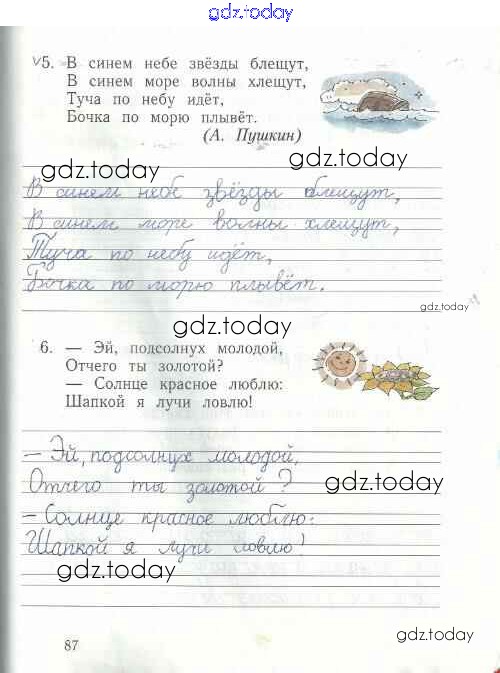 gdz.today
√5. В синем небе звёзды блещут,
В синем море волны хлещут,
Туча по небу идёт,
Бочка по морю плывёт.
(А. Пушкин)
gdz.today
gdz.today
В синем небе звёзды блещут,
В синем море волны хлещут,
Туча по небу идёт,
Бочка по морю плывёт.
gdz.today
gdz.today
6. — Эй, подсолнух молодой,
Отчего ты золотой?
— Солнце красное люблю:
Шапкой я лучи ловлю!
— Эй, подсолнух молодой,
Отчего ты золотой?
gdz.today
— Солнце красное люблю:
Шапкой я лучи ловлю!
gdz.today
87
gdz.today